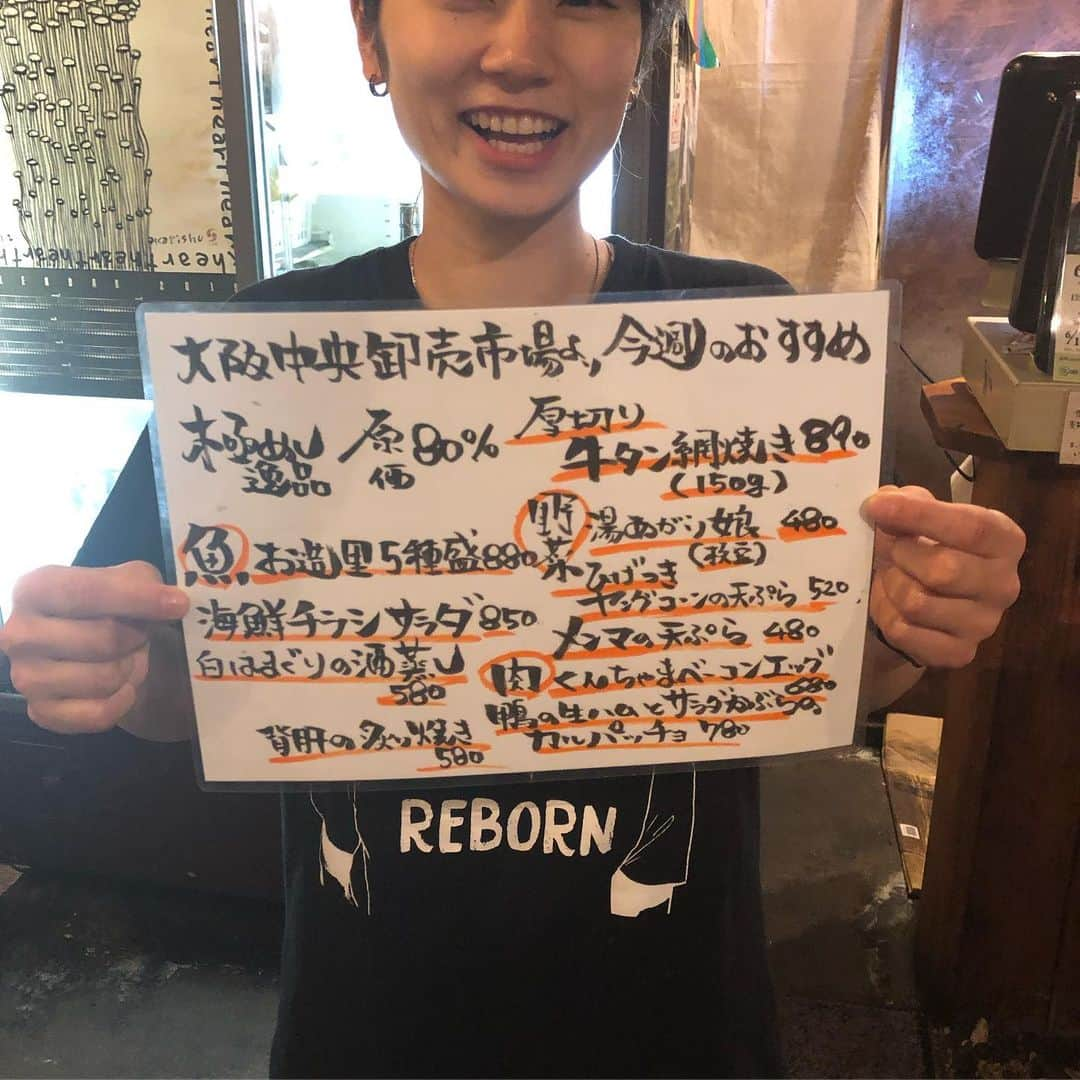 大阪中央卸売市場より今週のおすすめ
極めし逸品 原価80%
魚 お造里5種盛880
海鮮チラシサラダ850
白はまぐりの酒蒸し
580
背肝の炙り焼き
580
厚切り
牛タン網焼き890
(150g)
野菜 湯あがり娘 480
(枝豆)
ひげつき
ヤングコーンの天ぷら 520
メンマの天ぷら 480
肉 くんちゃまベーコンエッグ
680
鴨の生ハムとサラダかぶらの
カルパッチョ 780
REBORN